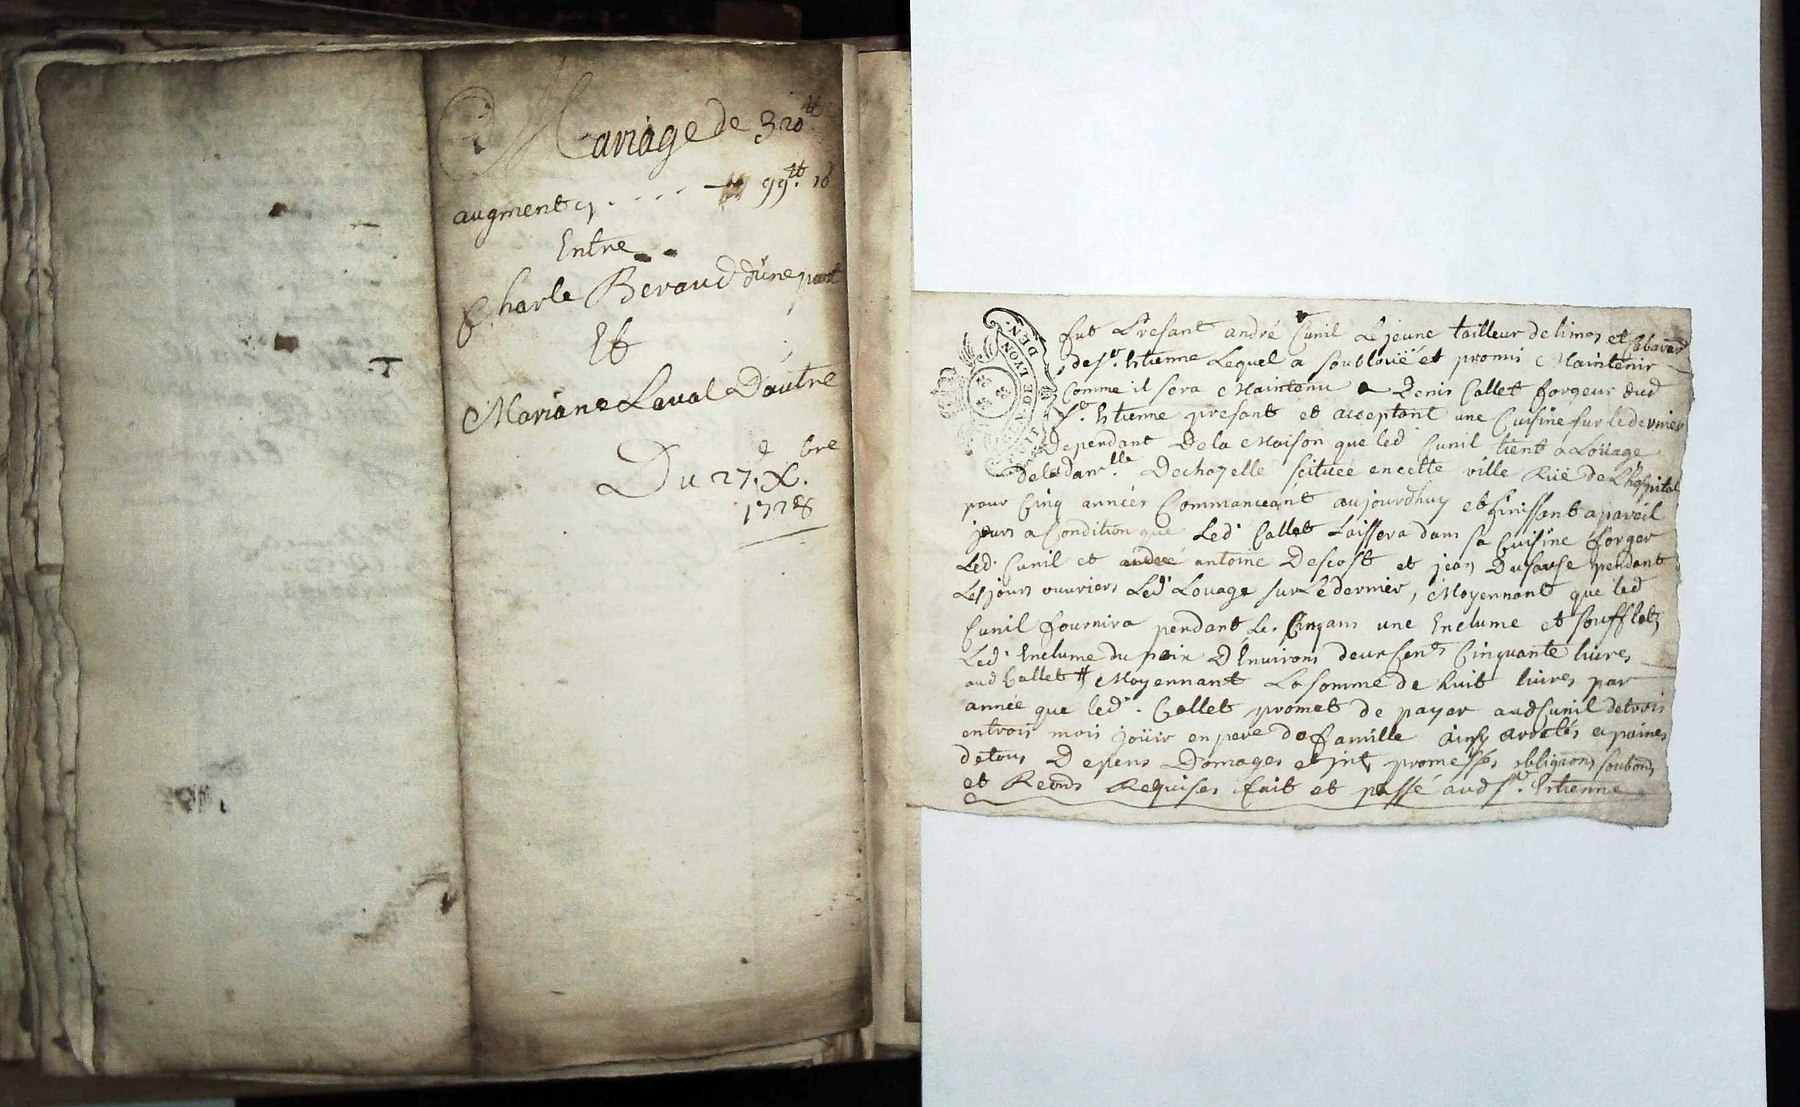 Mariage de 320tt
augment cy . . . . 99tt. 10
Entre
Charle Beraud dune part
Et
Mariane Laval Dautre
Du 27.e Xbre.
1728
GEN. DE LYON DEN.
fut Présant andré Cunil Lejeune tailleur de limes et Cabaret
de St. Estienne Lequel a soubloüé et promis Maintenir
Comme il sera Maintenu a Denis Callet forgeur dud
St. Estienne présant et acceptant une Cuisine sur le dernier
Dependant De la Maison que led. Cunil tient a Loüage
De la dam.lle Dechazelle scitüée en cette ville Rüe de Lhospital
pour Cinq années Commanceant aujourdhuy et finissant a pareil
jours a Condition que Led. Callet Laissera dans sa Cuisine forger
Led. Cunil et andré antoine Descost et jean Dusause pendant
Les jours ouvriers Led. Louage sur Le dernier, Moyennant que led
Cunil fournira pendant Les Cinq ans une Enclume et soufflets
Led. Enclume du poix DEnvirons deux Cens Cinquante livres
aud Callet # Moyennant La somme de huit livres par
année que led. Callet promet de payer aud Cunil de trois
en trois mois joüir en pere de famille Ainsy arrétés a paines
de tous Depens Domages et int promesses obligaons soubons
et Renons Requises fait et passé aud St. Estienne